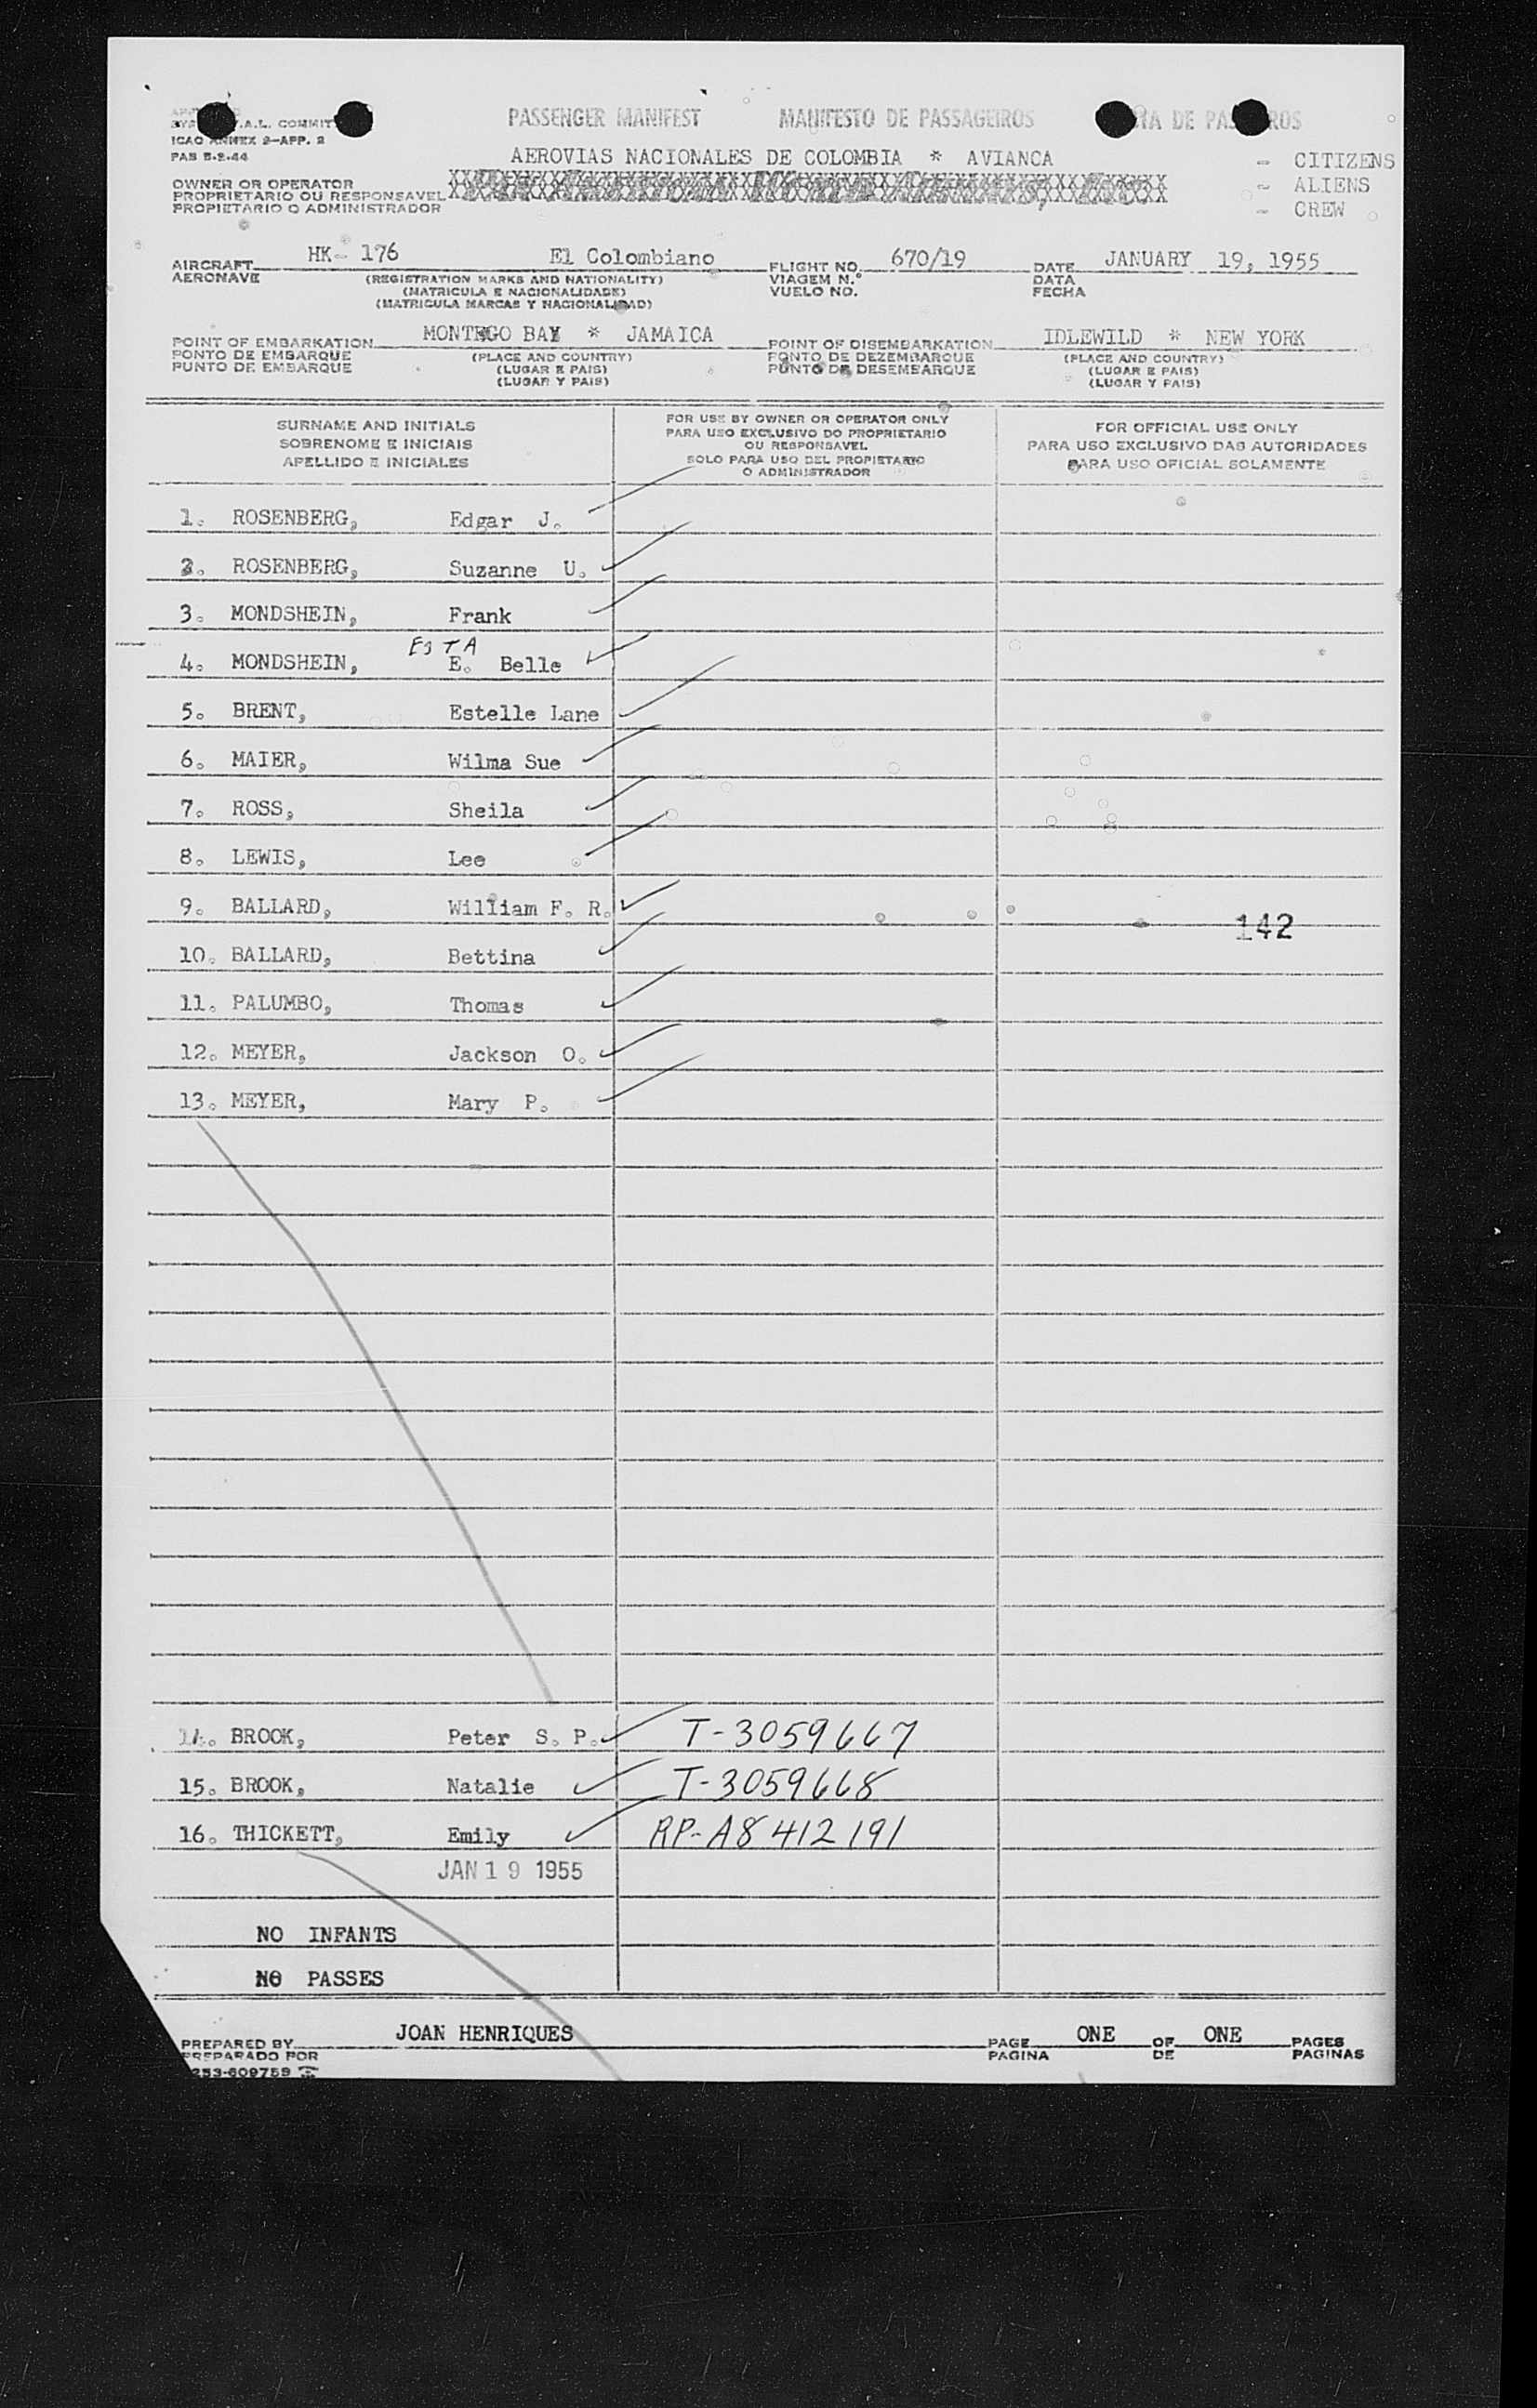 PASSENGER MANIFEST MANIFESTO DE PASSAGEIROS DE
.A.L. COMMIT
ICAO ANNEX 9-APP. 2
PAB 5-2-44
AEROVIAS NACIONALES DE COLOMBIA * AVIANCA
- CITIZENS
- ALIENS
- CREW
OWNER OR OPERATOR
PROPRIETARIO OU RESPONSAVEL
PROPIETARIO O ADMINISTRADOR
AIRCRAFT HK- 176 El Colombiano FLIGHT NO. 670/19 DATE JANUARY 19, 1955
AERONAVE (REGISTRATION MARKS AND NATIONALITY) VIAGEM N.° DATA
(MATRICULA E NACIONALIDADE) VUELO NO. FECHA
(MATRICULA MARCAS Y NACIONALIDAD)
POINT OF EMBARKATION MONTEGO BAY * JAMAICA POINT OF DISEMBARKATION IDLEWILD * NEW YORK
PONTO DE EMBARQUE (PLACE AND COUNTRY) PONTO DE DEZEMBARQUE (PLACE AND COUNTRY)
PUNTO DE EMBARQUE (LUGAR E PAIS) PUNTO DE DESEMBARQUE (LUGAR E PAIS)
(LUGAR Y PAIS) (LUGAR Y PAIS)
SURNAME AND INITIALS
SOBRENOME E INICIAIS
APELLIDO E INICIALES
FOR USE BY OWNER OR OPERATOR ONLY
PARA USO EXCLUSIVO DO PROPRIETARIO
OU RESPONSAVEL
SOLO PARA USO DEL PROPIETARIO
O ADMINISTRADOR
FOR OFFICIAL USE ONLY
PARA USO EXCLUSIVO DAS AUTORIDADES
PARA USO OFICIAL SOLAMENTE
1. ROSENBERG, Edgar J.
2. ROSENBERG, Suzanne U.
3. MONDSHEIN, Frank
ESTA
4. MONDSHEIN, E. Belle
5. BRENT, Estelle Lane
6. MAIER, Wilma Sue
7. ROSS, Sheila
8. LEWIS, Lee
9. BALLARD, William F. R.
142
10. BALLARD, Bettina
11. PALUMBO, Thomas
12. MEYER, Jackson O.
13. MEYER, Mary P.
14. BROOK, Peter S. P. T-3059667
15. BROOK, Natalie T-3059668
16. THICKETT, Emily RP-A8 412 191
JAN 19 1955
NO INFANTS
NO PASSES
PREPARED BY JOAN HENRIQUES PAGE ONE OF ONE PAGES
PREPARADO POR PAGINA DE PAGINAS
253-609759